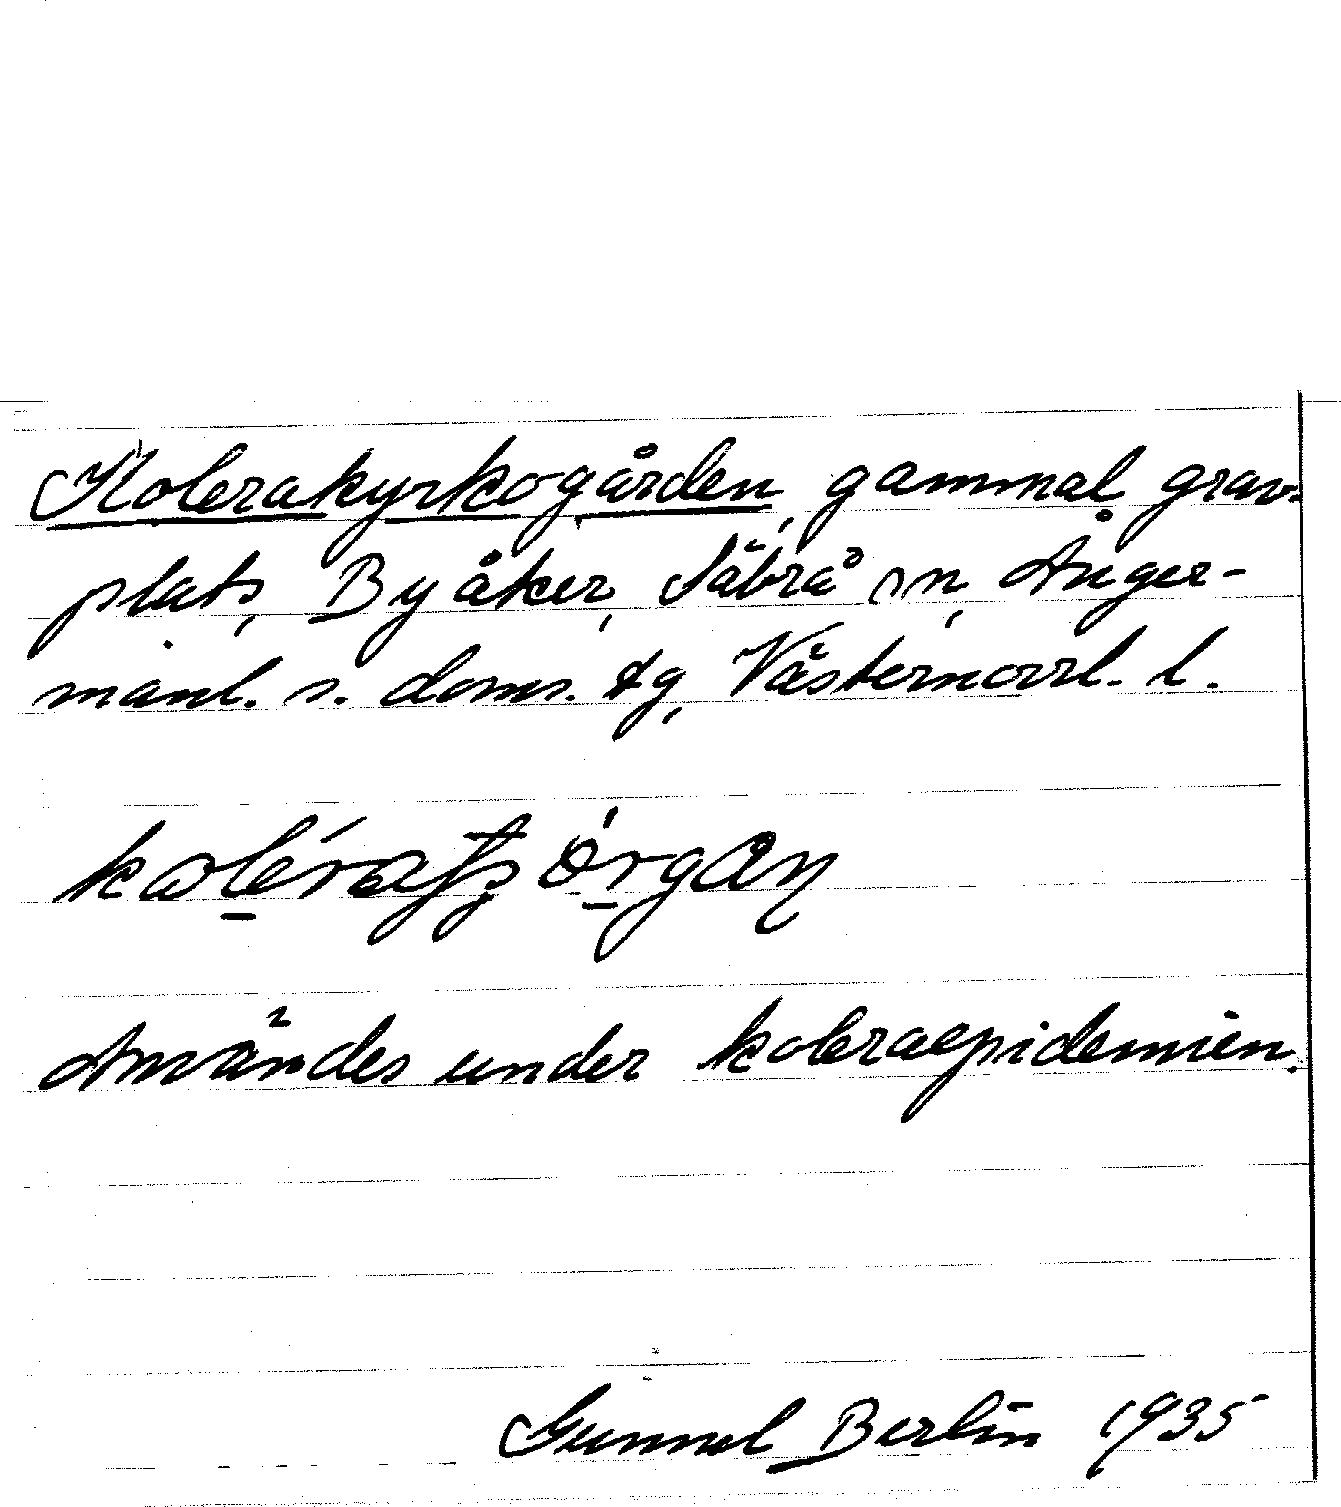 Kolerakyrkogården, gammal grav-
plats, Byåker, Säbrå sn, Ånger-
manl. s. doms. tg, Västernorrl. l.
Användes under koleraepidemien.
Gunnel Berlin 1935